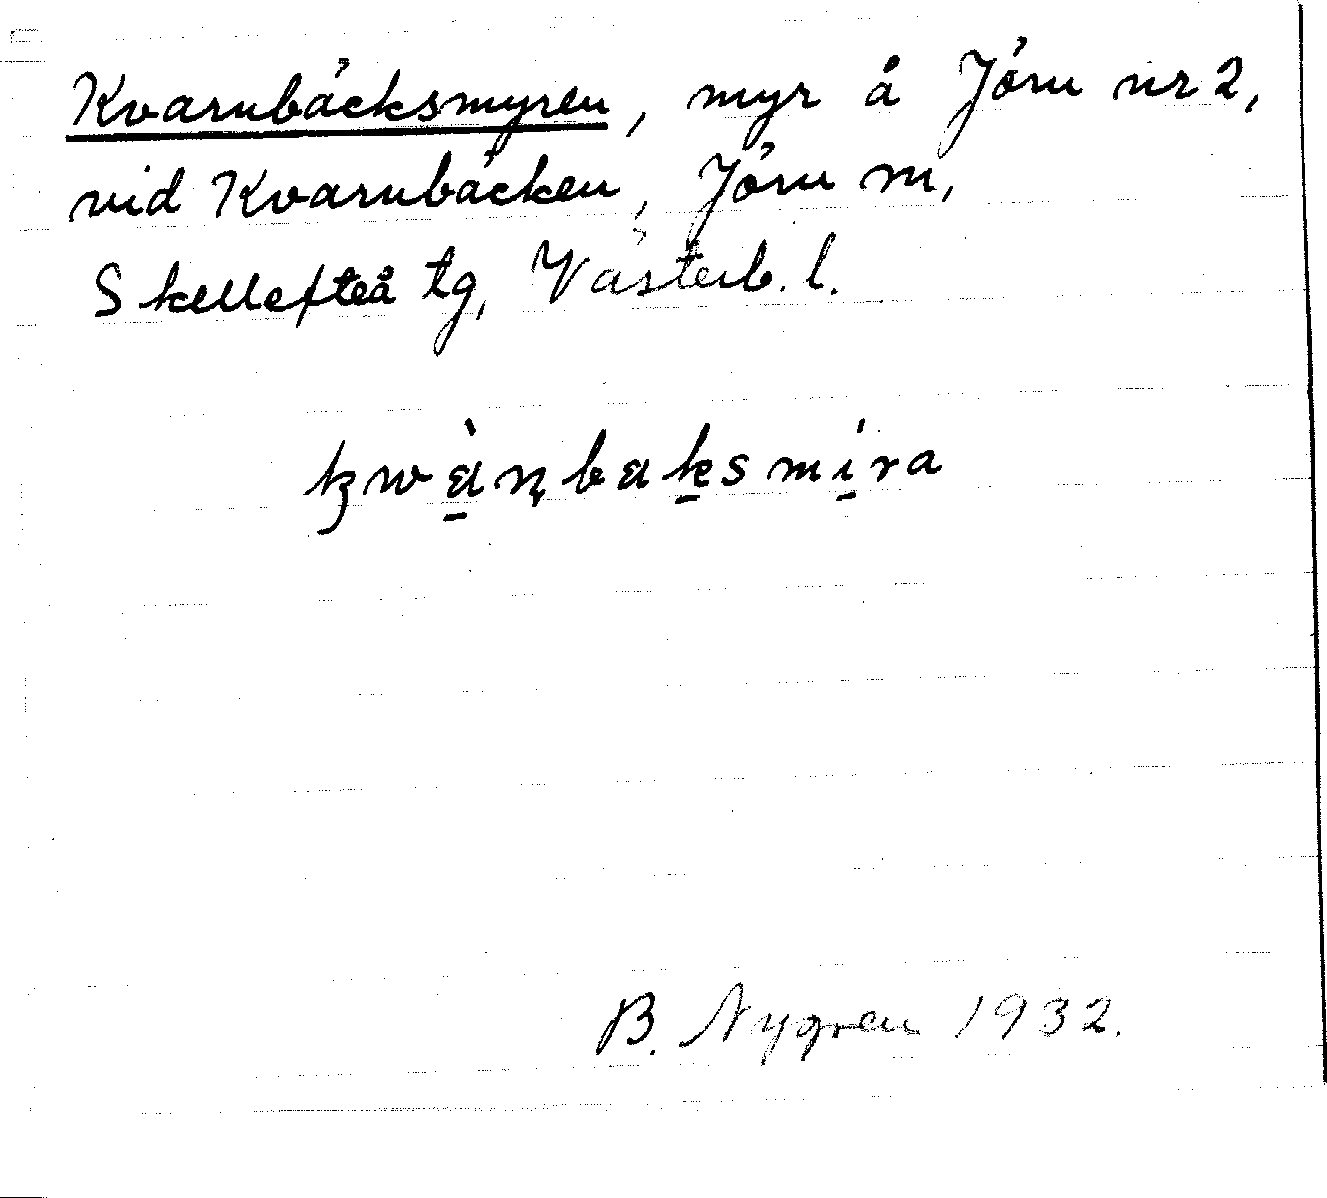 Kvarnbäcksmyren, myr å Jörn nr 2,
vid Kvarnbäcken, Jörn m,
Skellefteå tg, Västerb. l.
B. Nygren 1932.